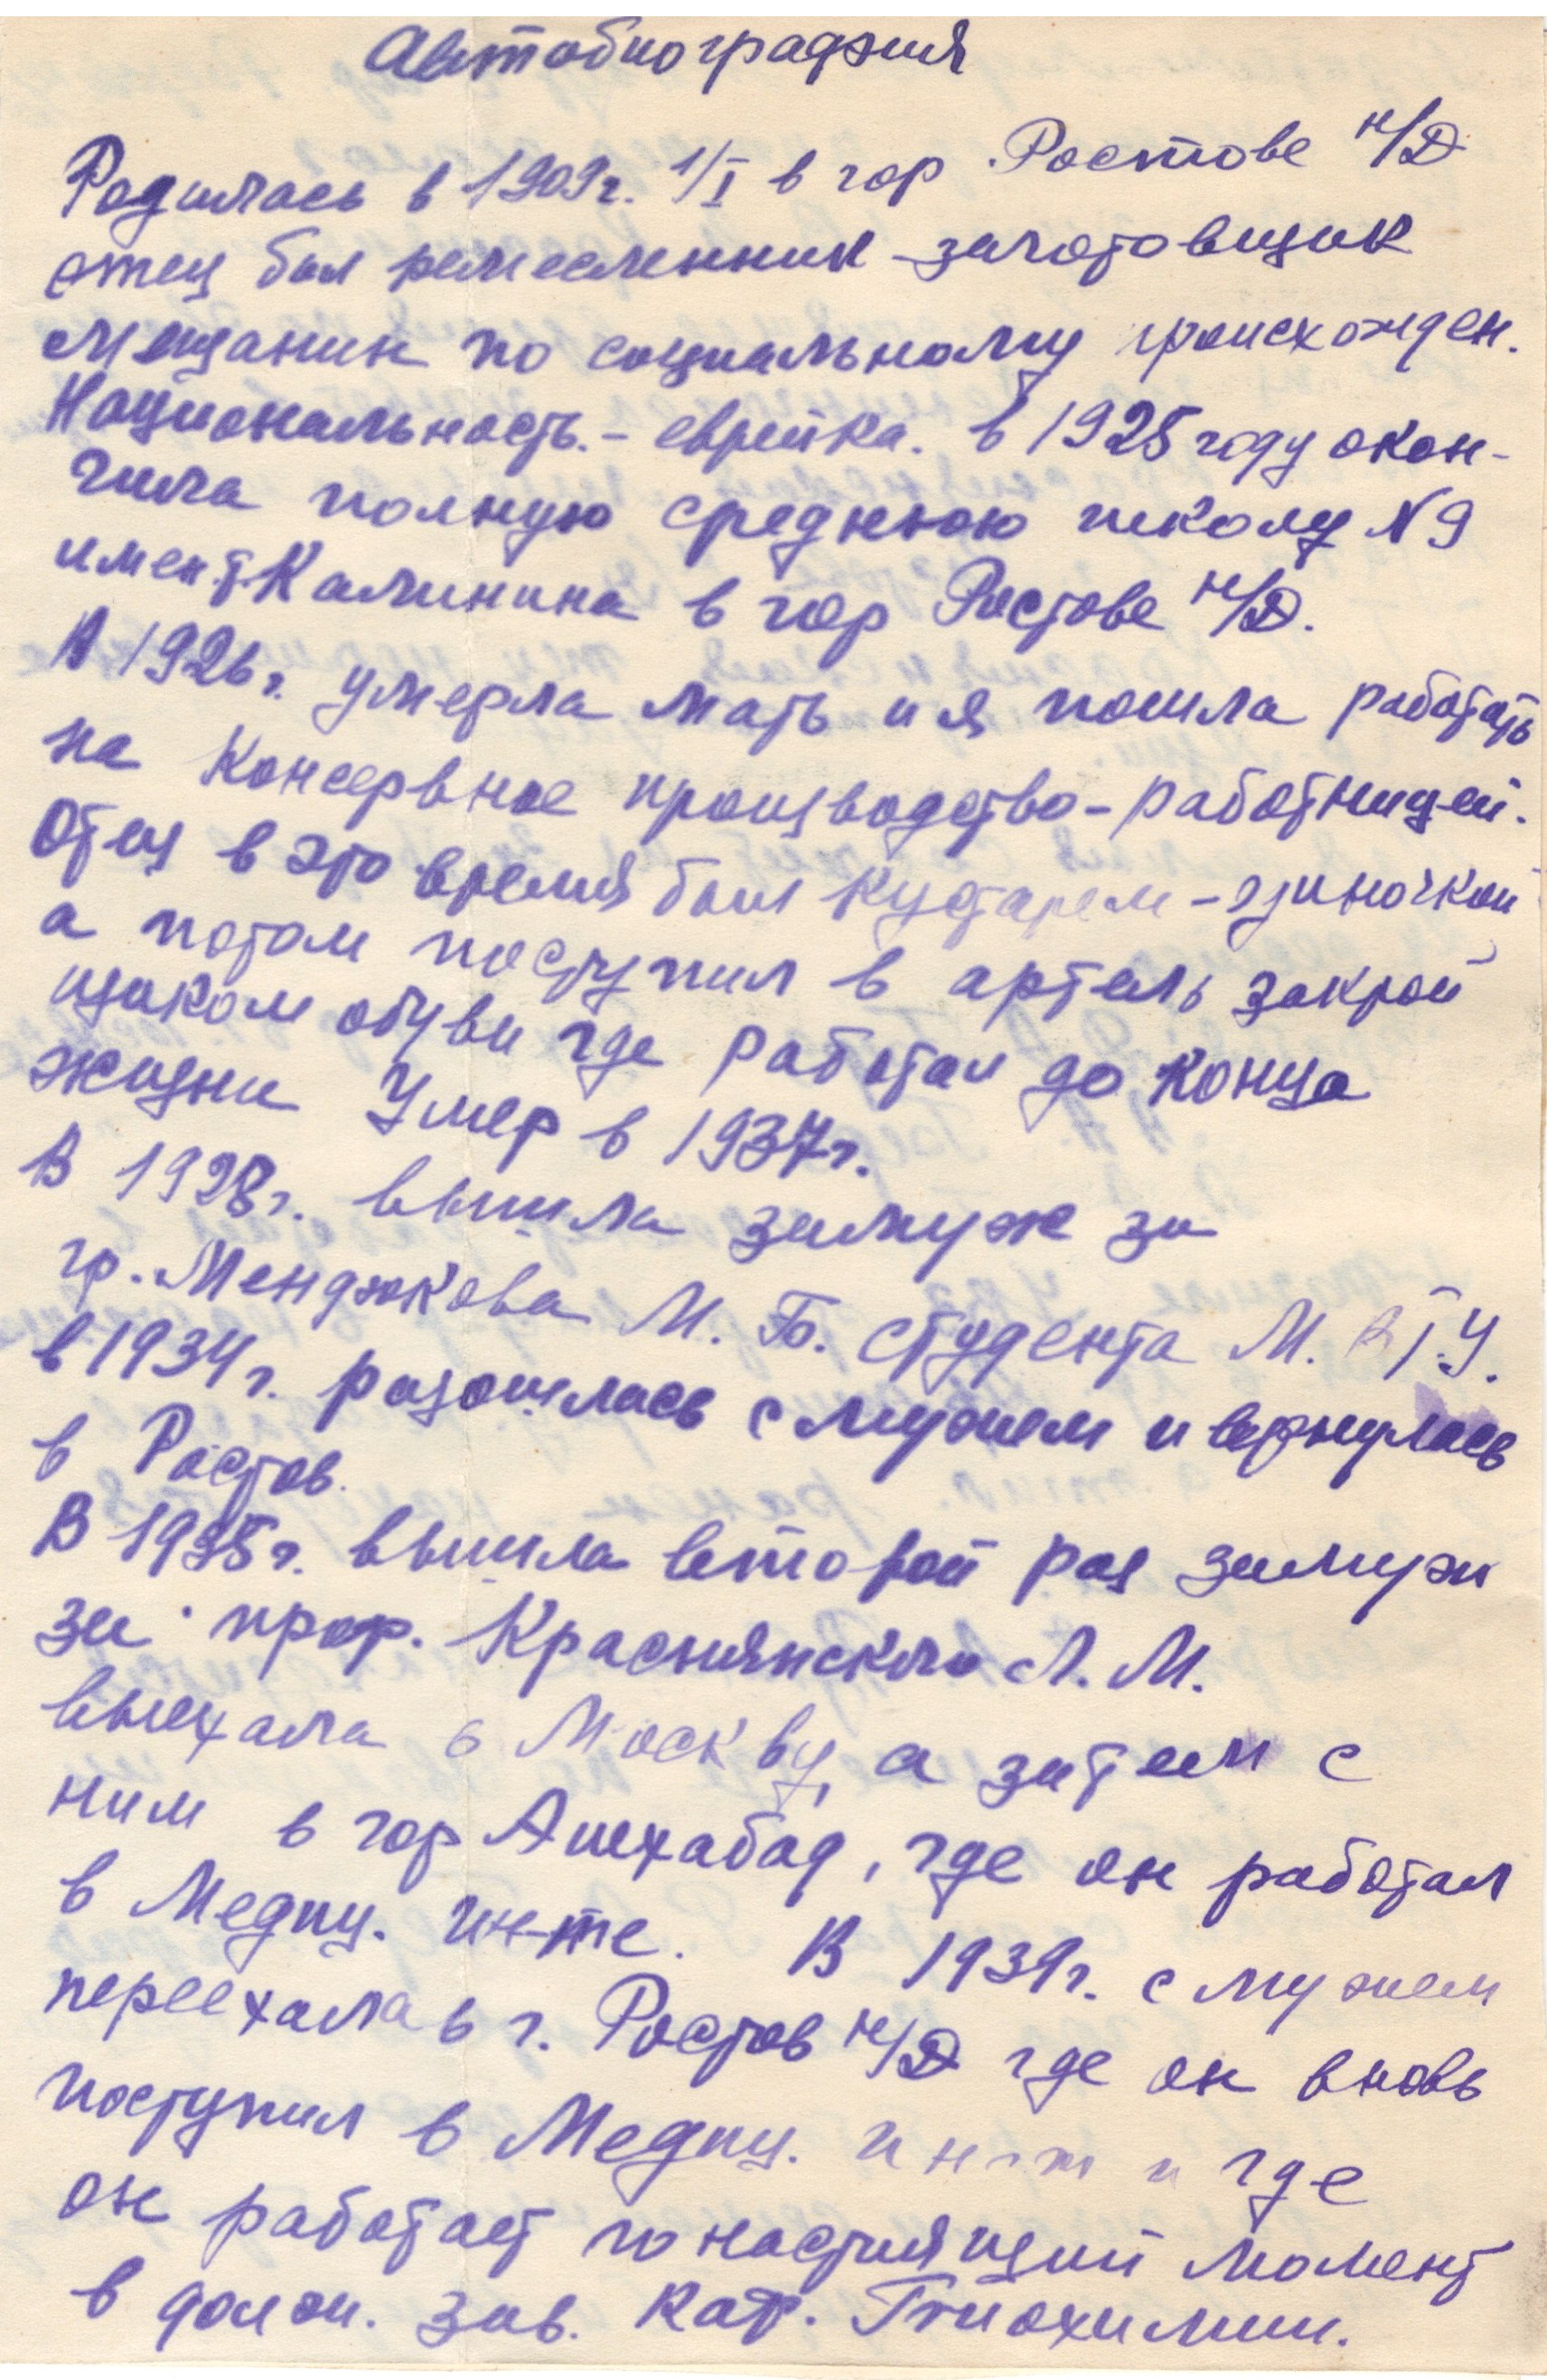 Автобиография
Родилась в 1909г. 1/I в гор. Ростове н/Д
отец был ремесленник - заготовщик
мещанин по социальному происхожден.
Национальность. - еврейка. в 1925 году окон-
чила полную среднюю школу N 9
имен. Калинина в гор Ростове н/Д.
В 1926г. умерла мать и я пошла работать
на консервное производство - работницей.
Отец в это время был кустарем - одиночкой
а потом поступил в артель закрой
щиком обуви где работал до конца
жизни Умер в 1937г.
В 1928г. вышла замуж за
гр. Менджокова М. Б. студента М. В Т. У.
в 1934г. разошлась с мужем и вернулась
в Ростов.
В 1935г. вышла второй раз замуж
за проф. Краснянского Л. М.
выехала в Москву, а затем с
ним в гор Ашхабад, где он работал
в Медиц. Ин-те. В 1939г. с мужем
переехала в г. Ростов н/Д где он вновь
поступил в Медиц. Ин-т и где
он работает по настоящий момент
в должн. зав. каф. Биохимии.